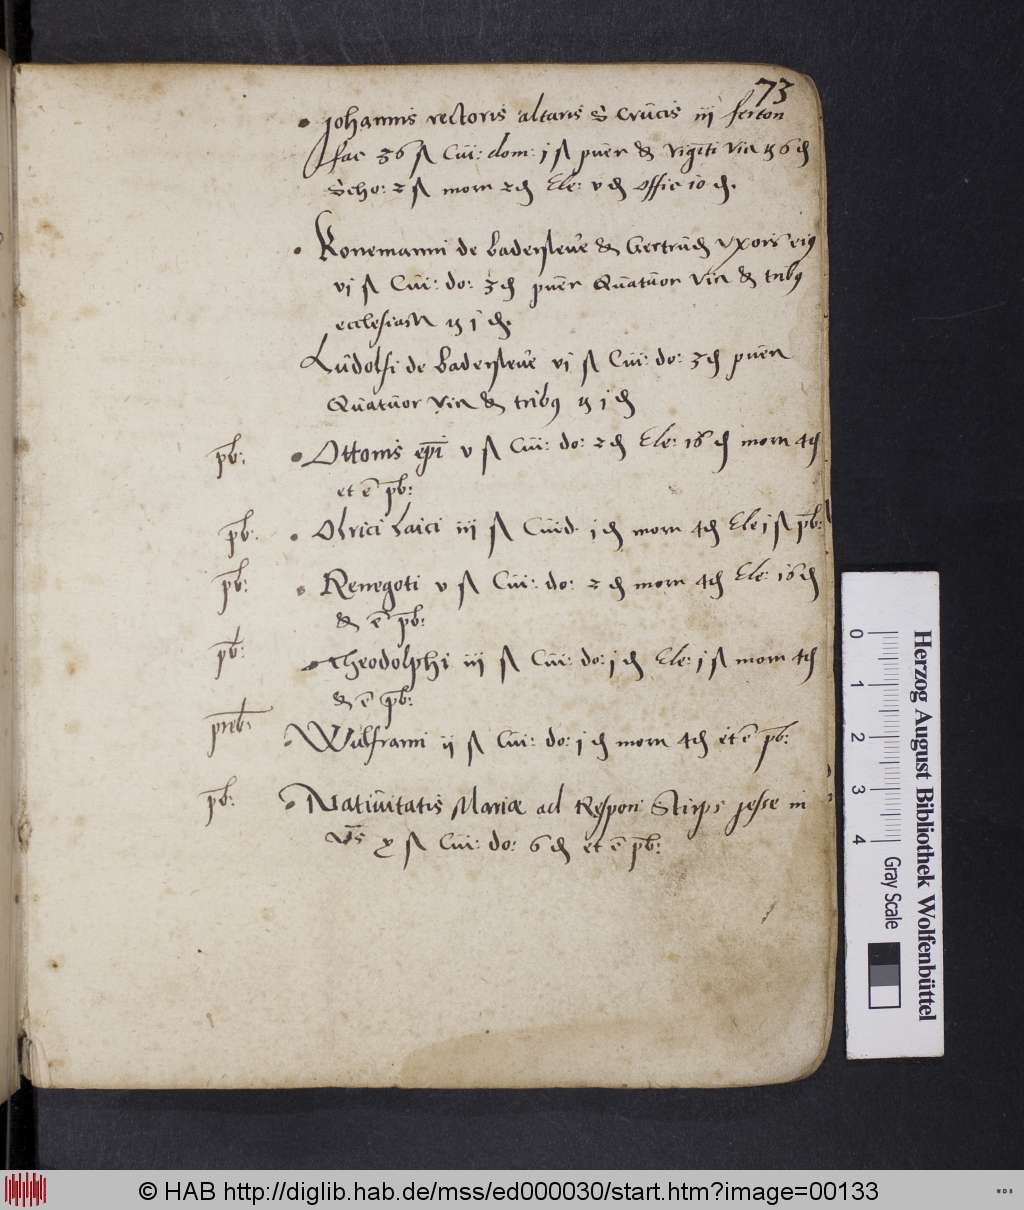 73
Johannis rectoris altaris S Crucis iij ferton
fac 36 ß Cui: dom: j ß puer & viginti vica 6 ₰
Scho: 2 ß morn 2 ₰ Ele: v ₰ offic 10 ₰.
Konemanni de Badersleue & Gertrud vxoris eius
vj ß Cui: do: 3 ₰ puer Quatuor vica & tribus
ecclesiast j ₰.
Ludolfi de Badersleue vj ß Cui: do: 3 ₰ puer
Quatuor vica & tribus j ₰
pb: Ottonis epi v ß Cui: do: 2 ₰ Ele: 16 ₰ morn 4 ₰
et ē pb:
pb: Olrici Laici iij ß Cuid j ₰ morn 4 ₰ Ele j ß pb:
pb: Renegoti v ß Cui: do: 2 ₰ morn 4 ₰ Ele: 16 ₰
& ē pb:
pb: Theodolphi iij ß Cui: do: j ₰ Ele: j ß morn 4 ₰
& ē pb:
preb: Wulframi ij ß Cui: do: j ₰ morn 4 ₰ et ē pb:
pb: Natiuitatis Mariæ ad Respon: Stirps jesse in
ß Cui: do: 6 ₰ et ē pb:
0 1 2 3 4
Herzog August Bibliothek Wolfenbüttel
Gray Scale
© HAB http://diglib.hab.de/mss/ed000030/start.htm?image=00133